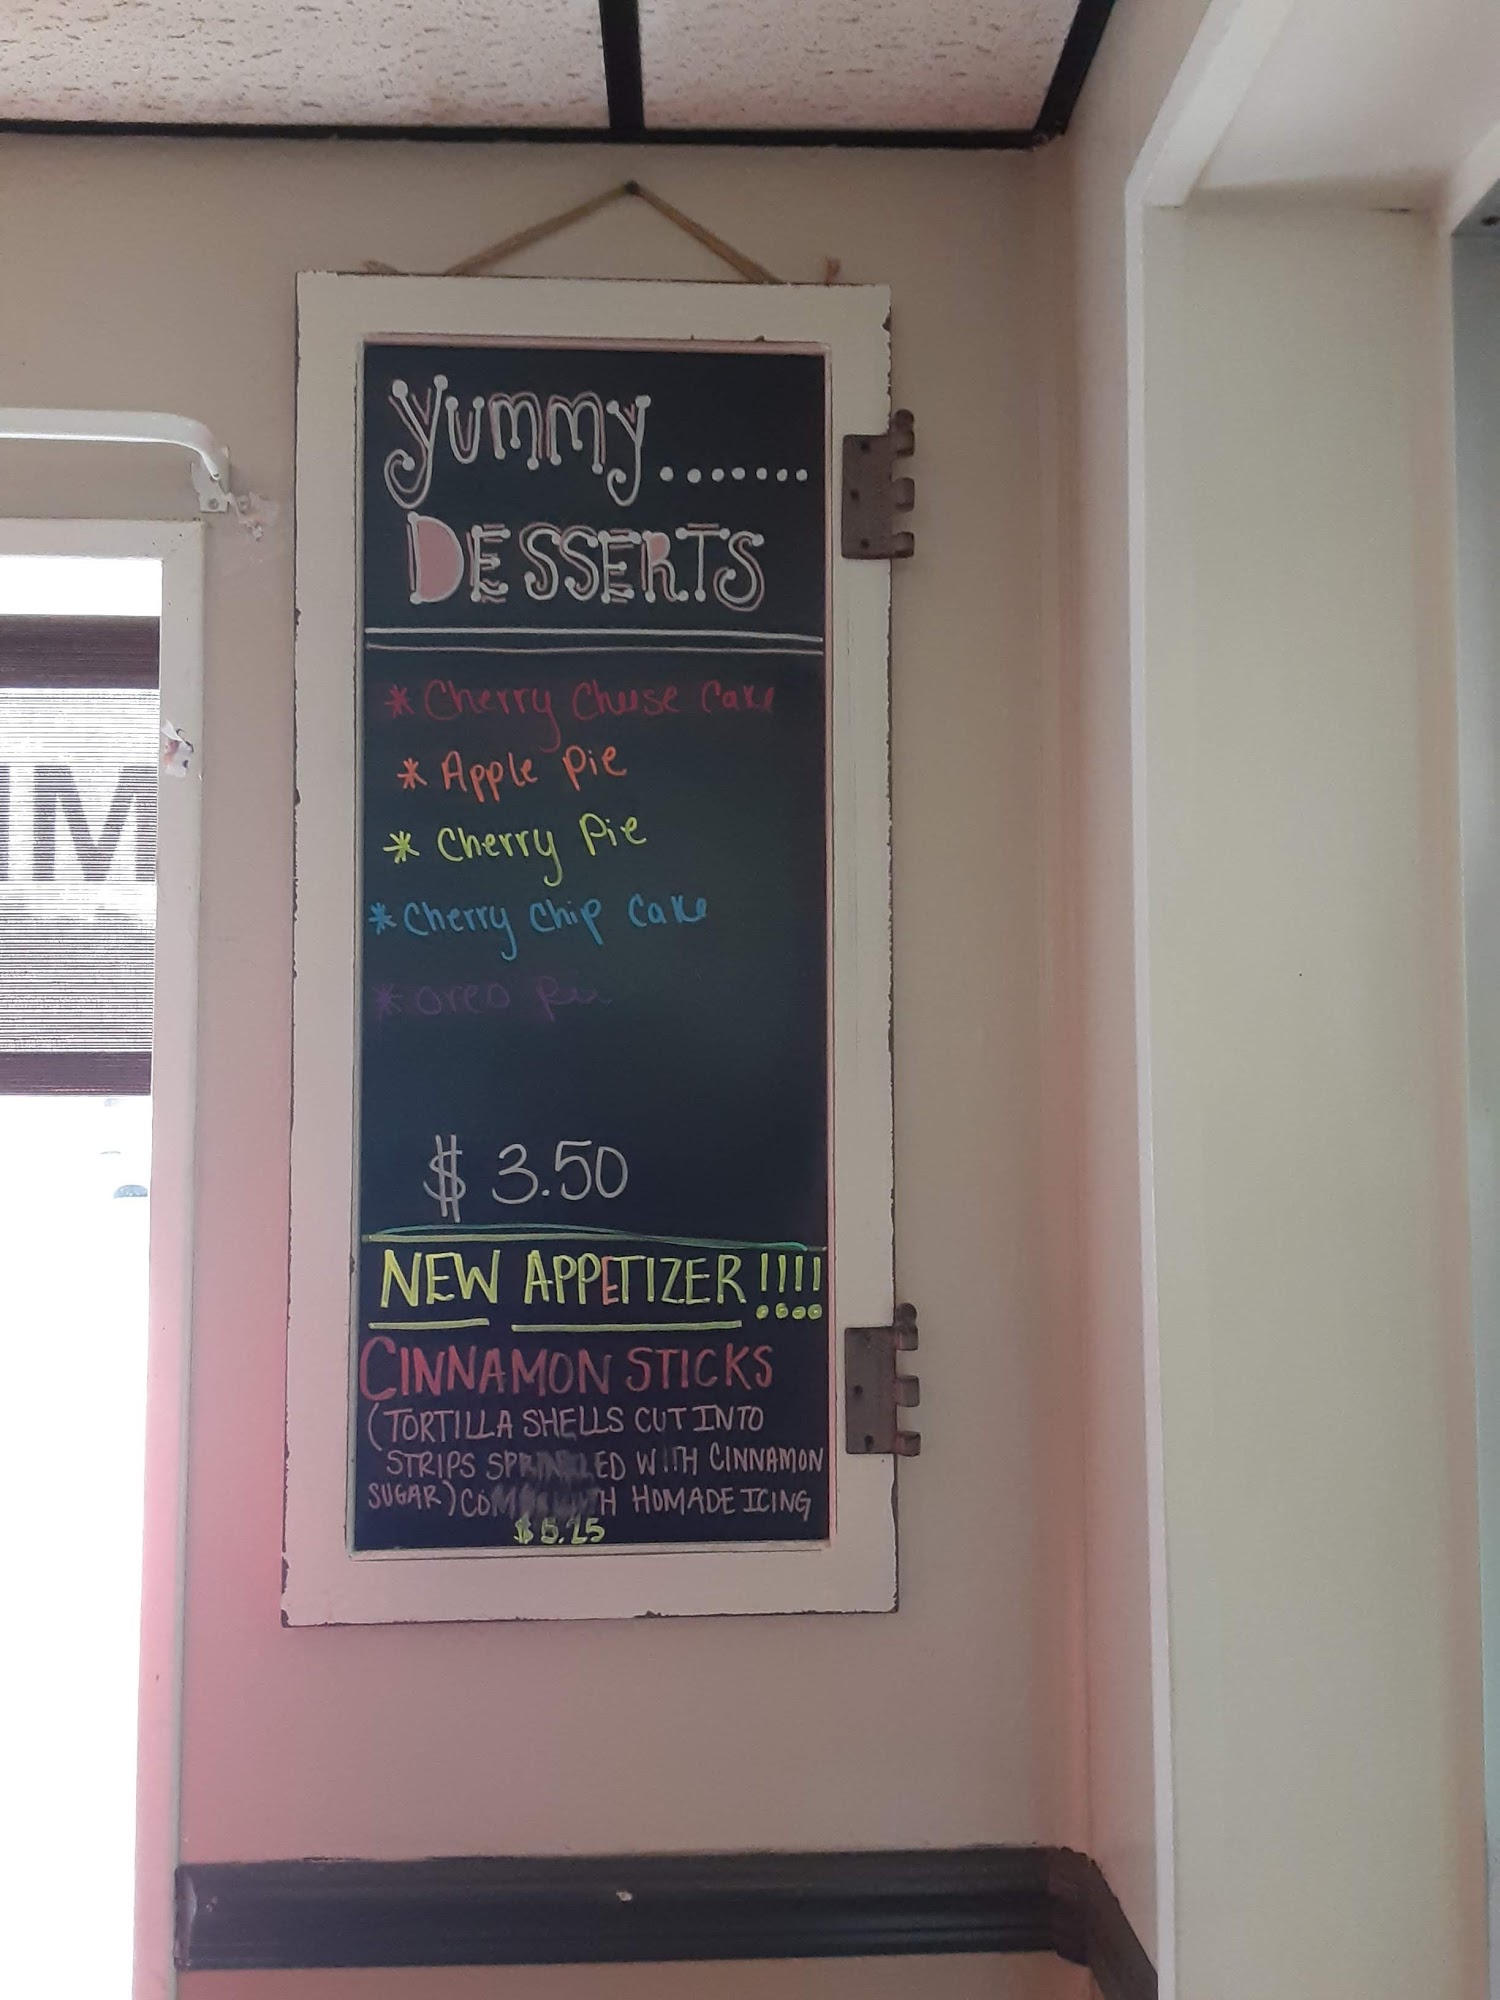 YUMMY.......
DESSERTS
* Cherry Cheese Cake
* Apple Pie
* Cherry Pie
* Cherry Chip Cake
* Oreo Pie
$ 3.50
NEW APPETIZER!!!!
CINNAMON STICKS
(TORTILLA SHELLS CUT INTO
STRIPS SPRINKLED WITH CINNAMON
SUGAR) HOMADE ICING
IM